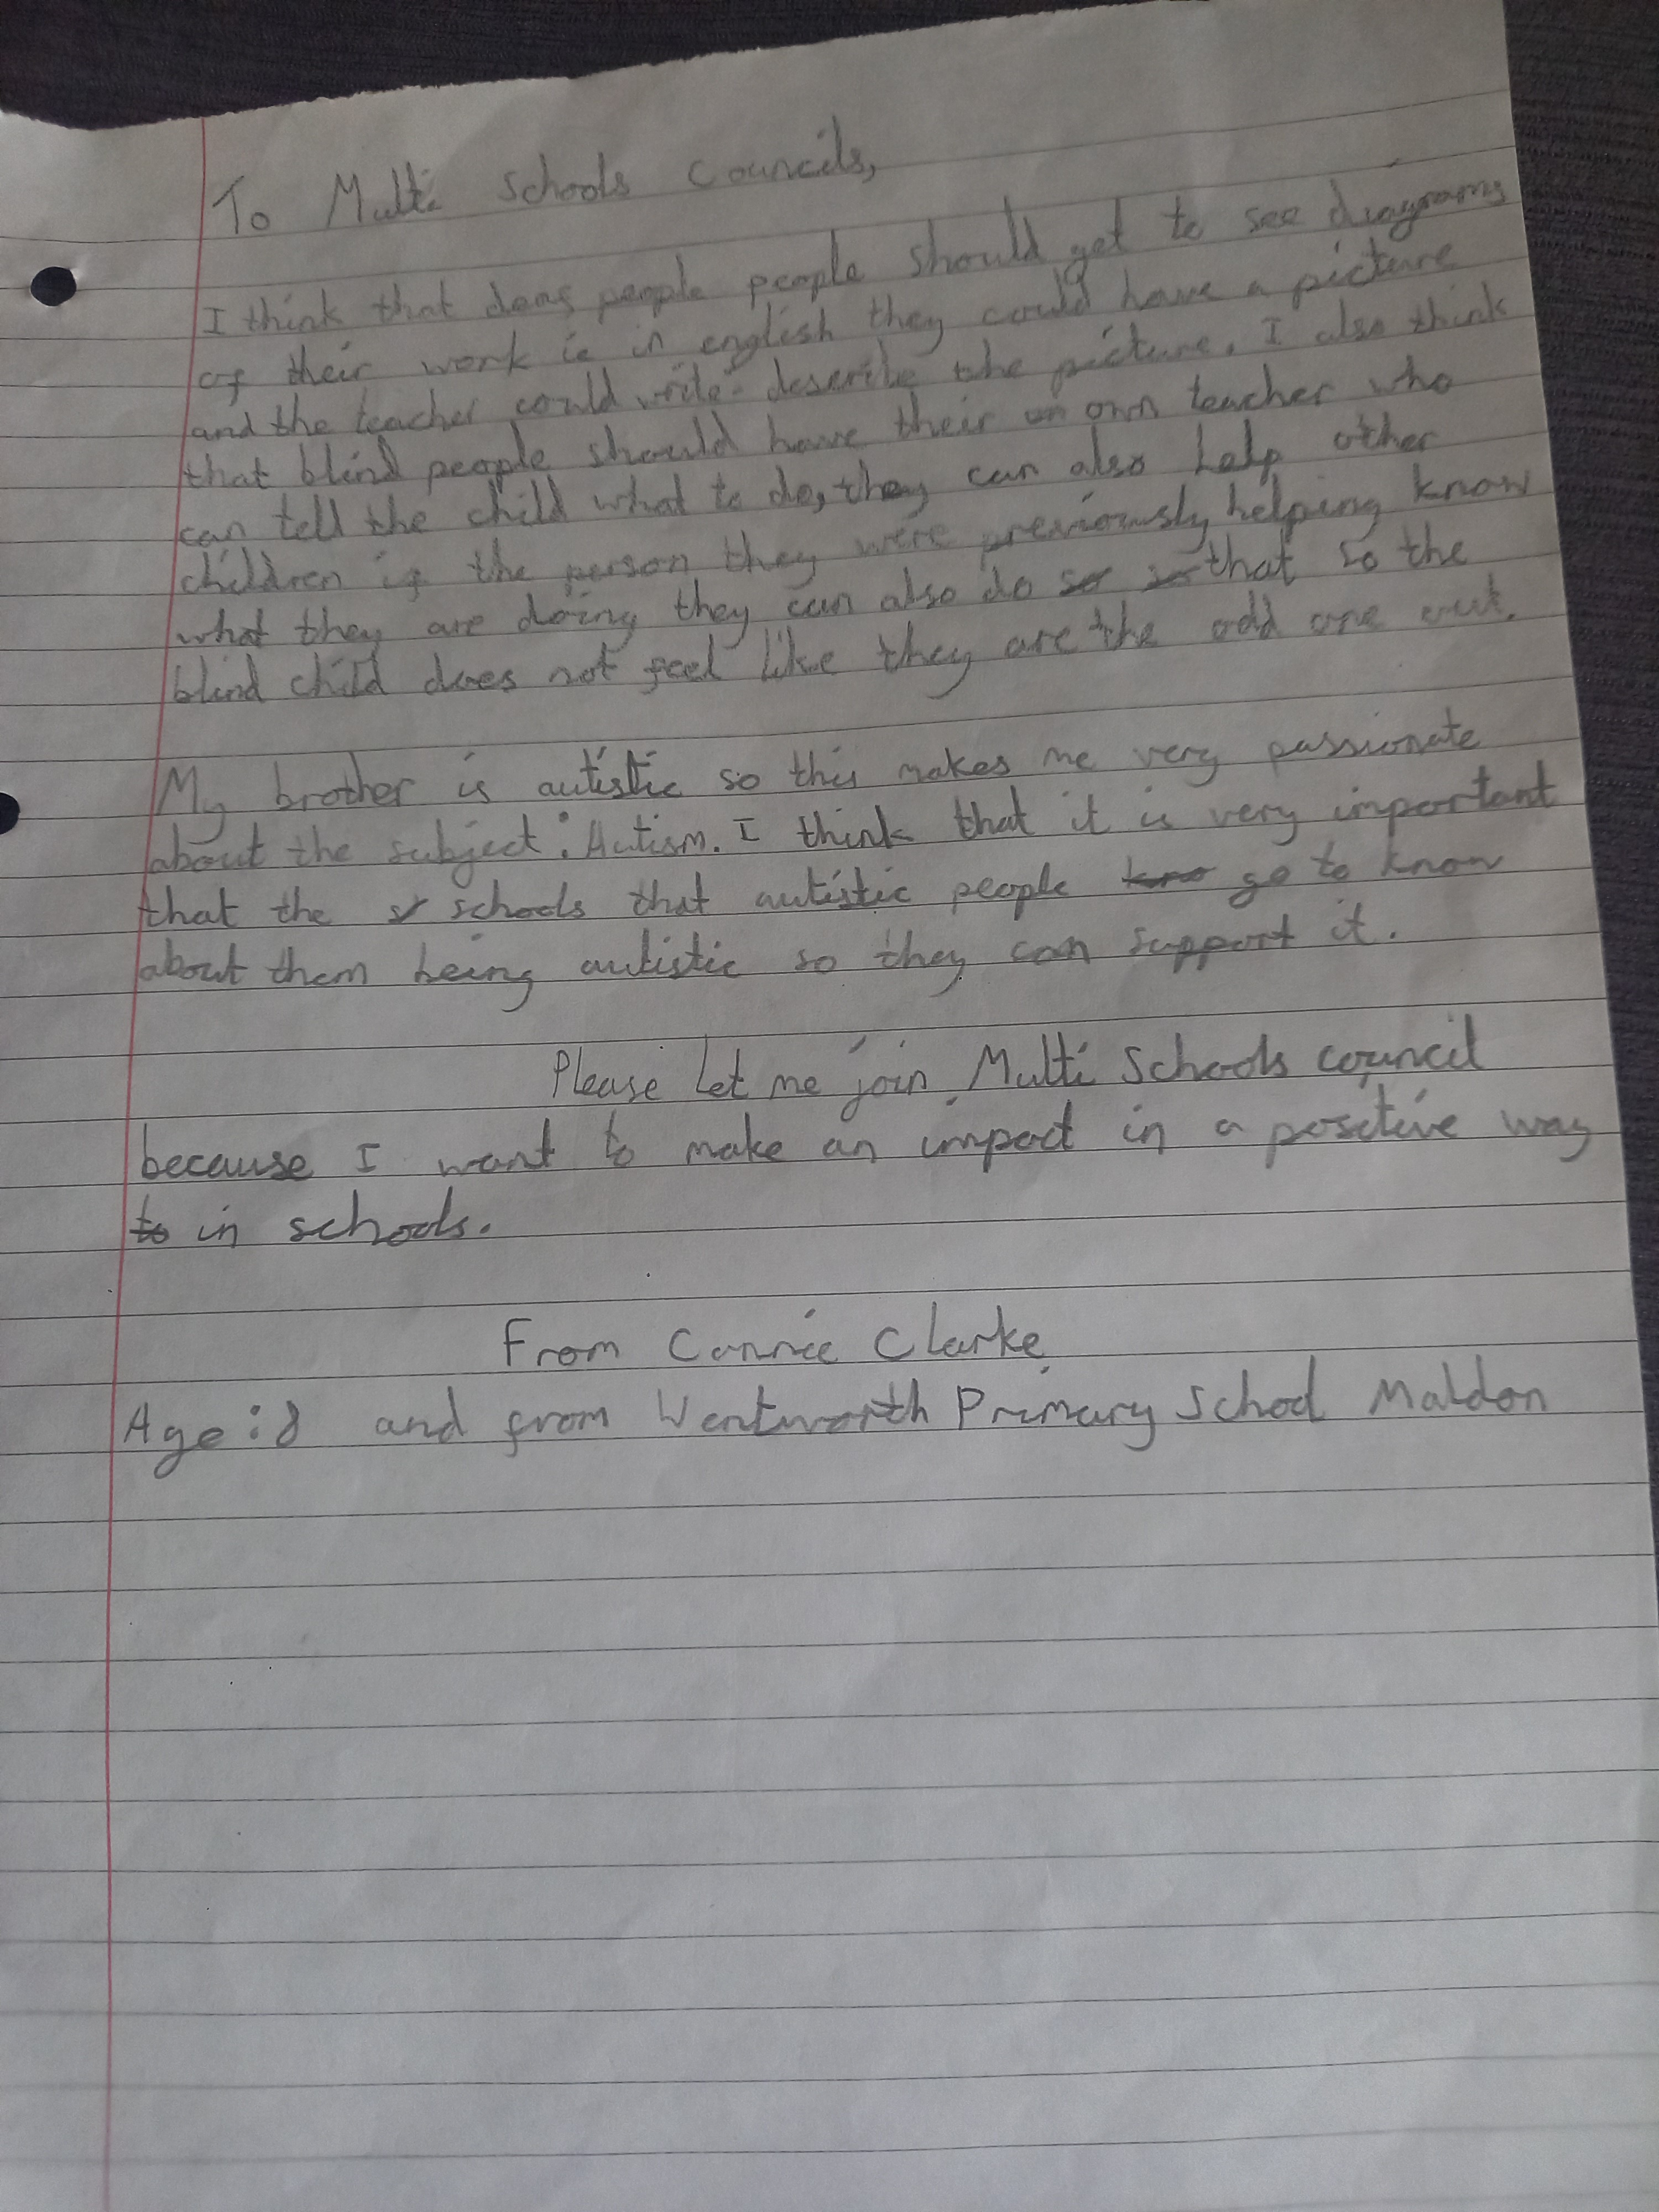 To Multi Schools Councils,
I think that deas people people should get to see diagrams
of their work ie in english they could have a picture
and the teacher could write describe the picture. I also think
that blind people should have their own teacher who
can tell the child what to do, they can also help other
children if the person they were previously helping know
what they are doing they can also do that so the
blind child does not feel like they are the odd one out.
My brother is autistic so this makes me very passionate
about the subject: Autism. I think that it is very important
that the schools that autistic people go to know
about them being autistic so they can support it.
Please let me join Multi Schools council
because I want to make an impact in a positive way
in schools.
From Connie Clarke
Age: 8 and from Wentworth Primary School Maldon